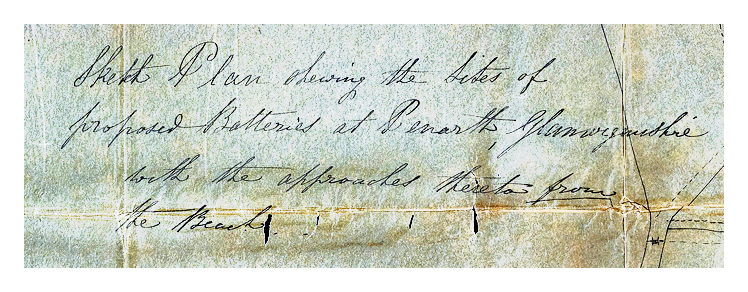 Sketch Plan shewing the Sites of
proposed Batteries at Penarth, Glamorganshire
with the approaches thereto from
the Beach.